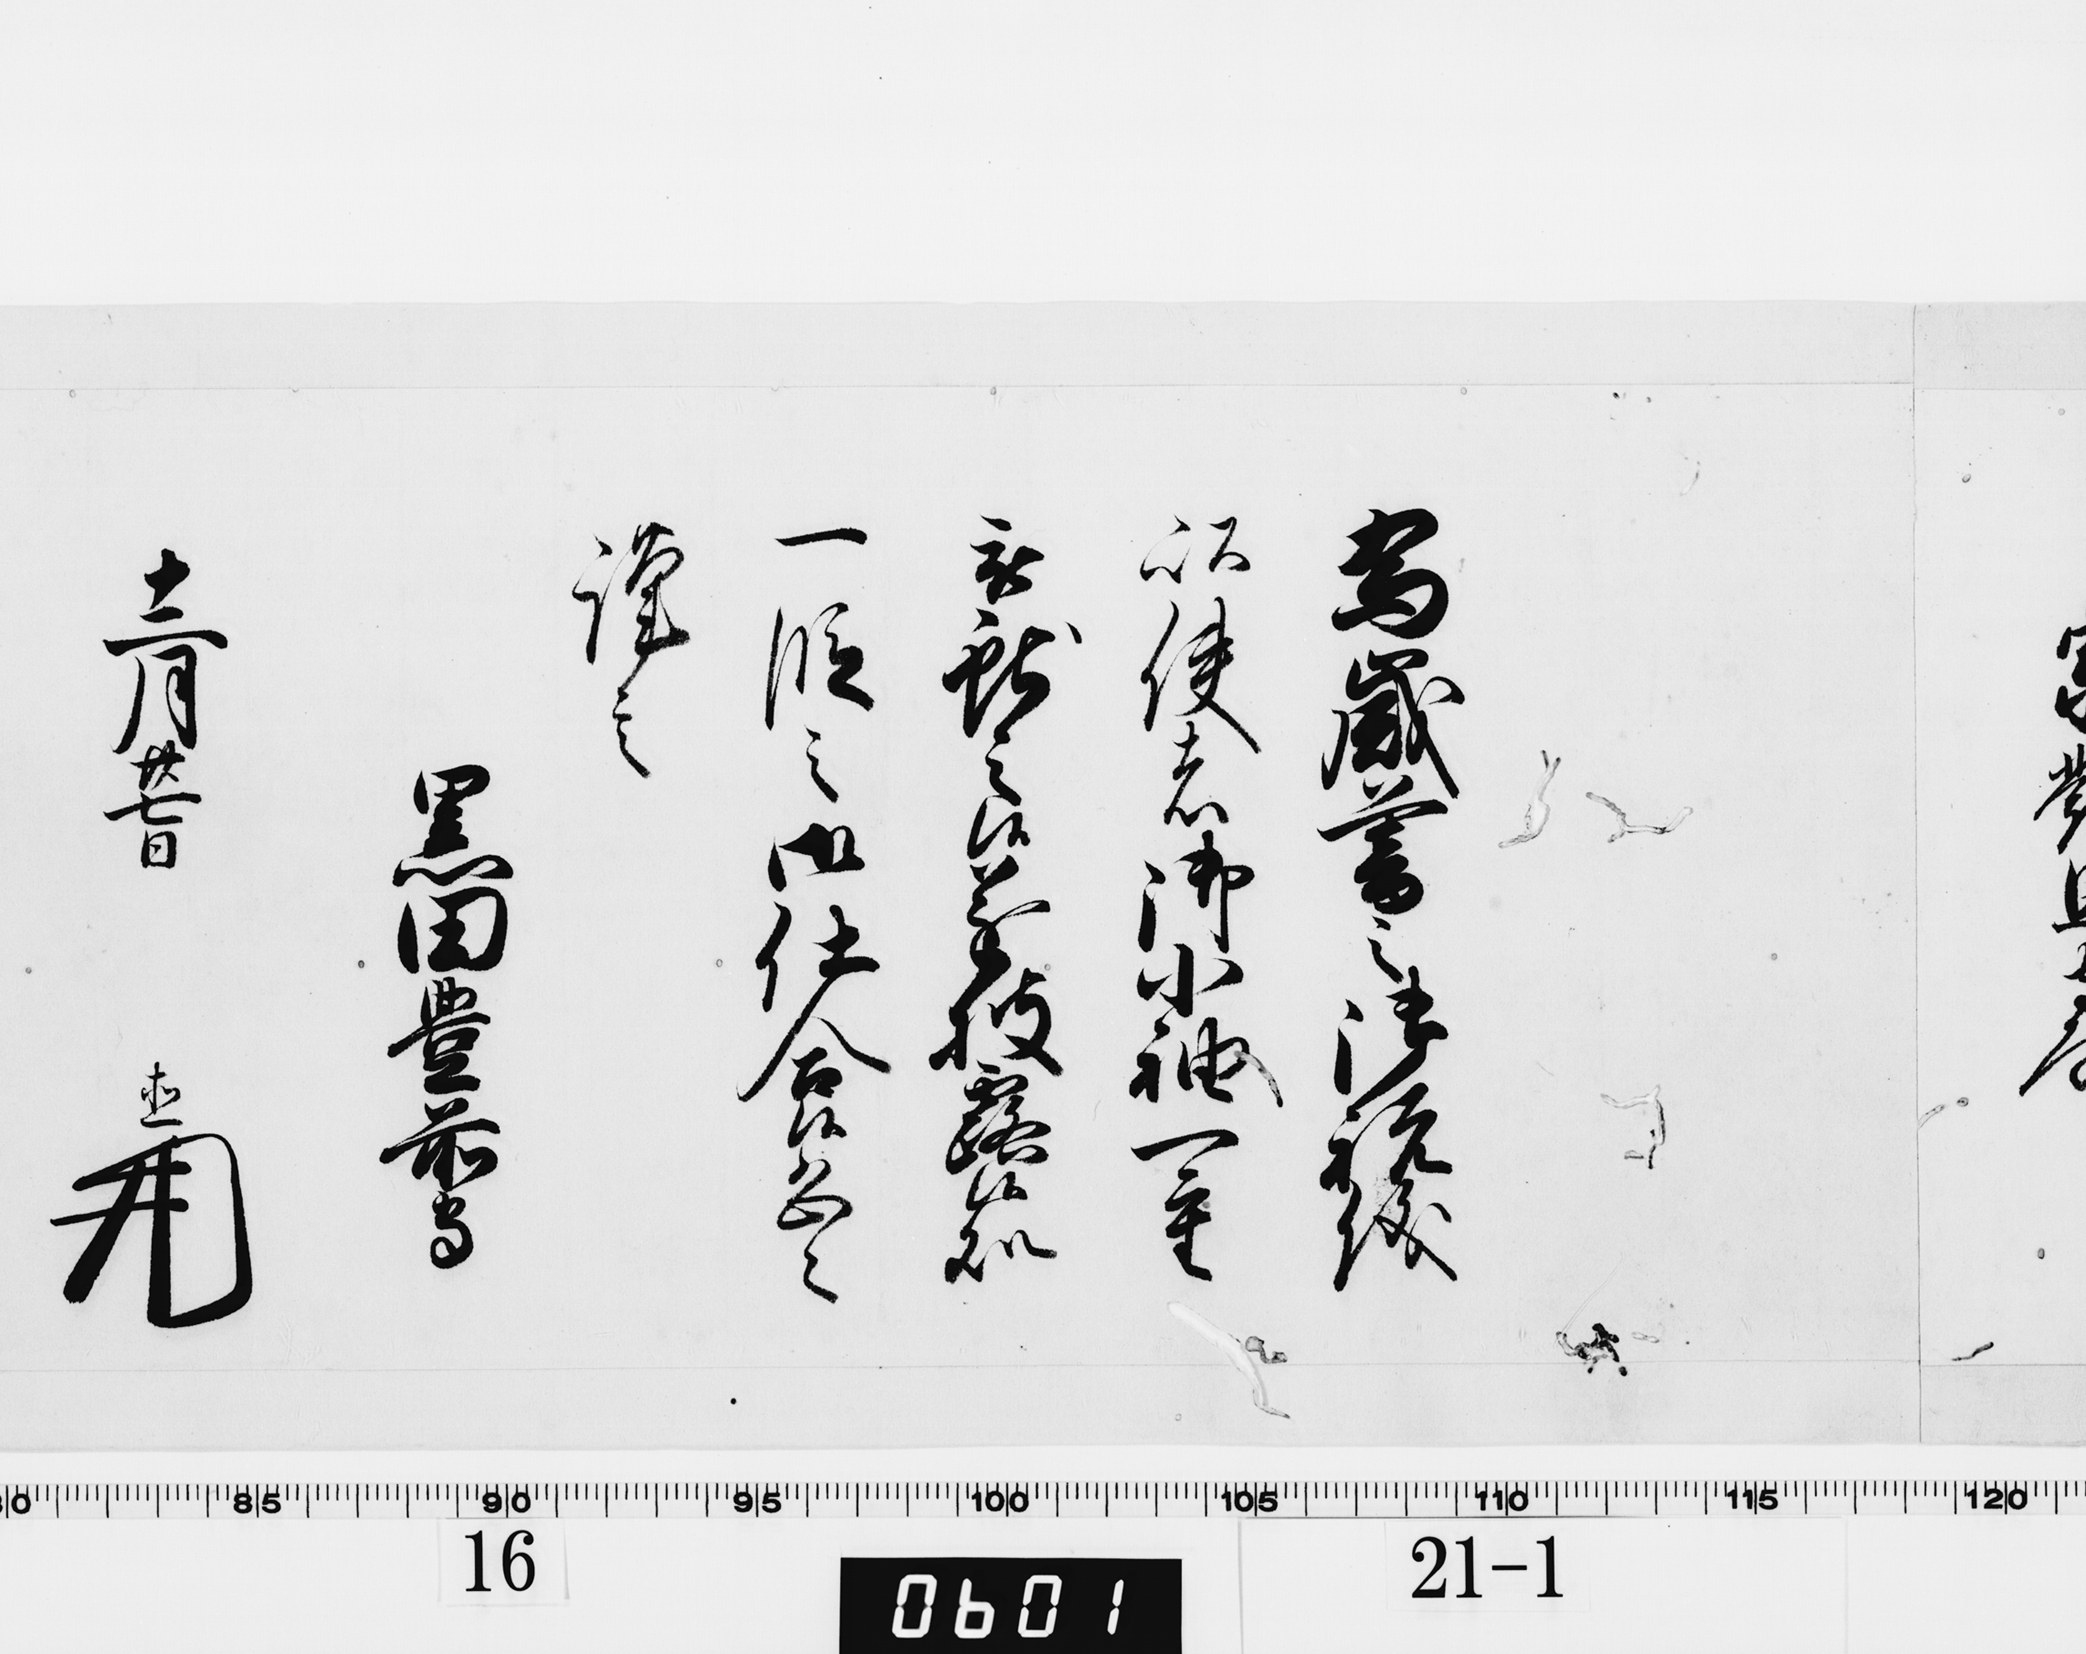 為歳暮之御祝儀
以使者御小袖一重
被献之候遂披露候処
一段之御仕合候恐々
謹言
黒田豊前守
十二月廿七日
直
80 85 90 95 100 105 110 115 120
16
0601
21-1